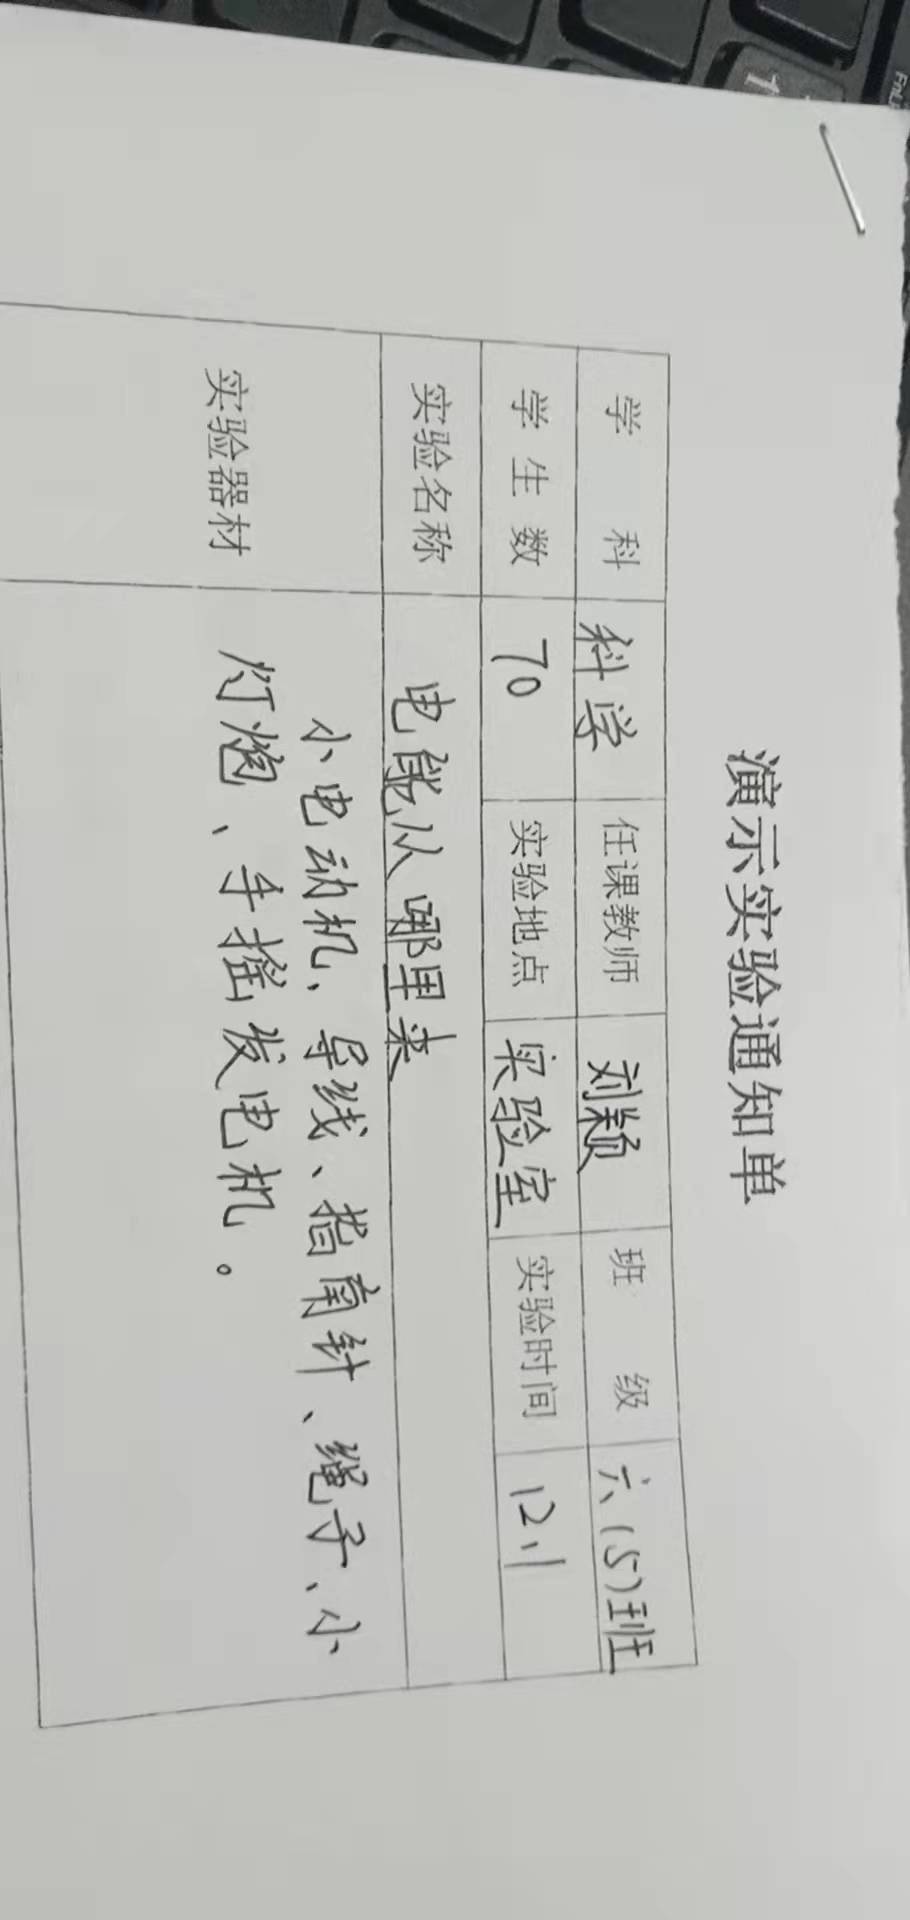 演示实验通知单
学 科 科学 任课教师 刘颖 班 级 六、(5)班
学 生 数 70 实验地点 实验室 实验时间 12.1
实验名称 电能从哪里来
实验器材 小电动机、导线、指南针、绳子、小
灯炮、手摇发电机。